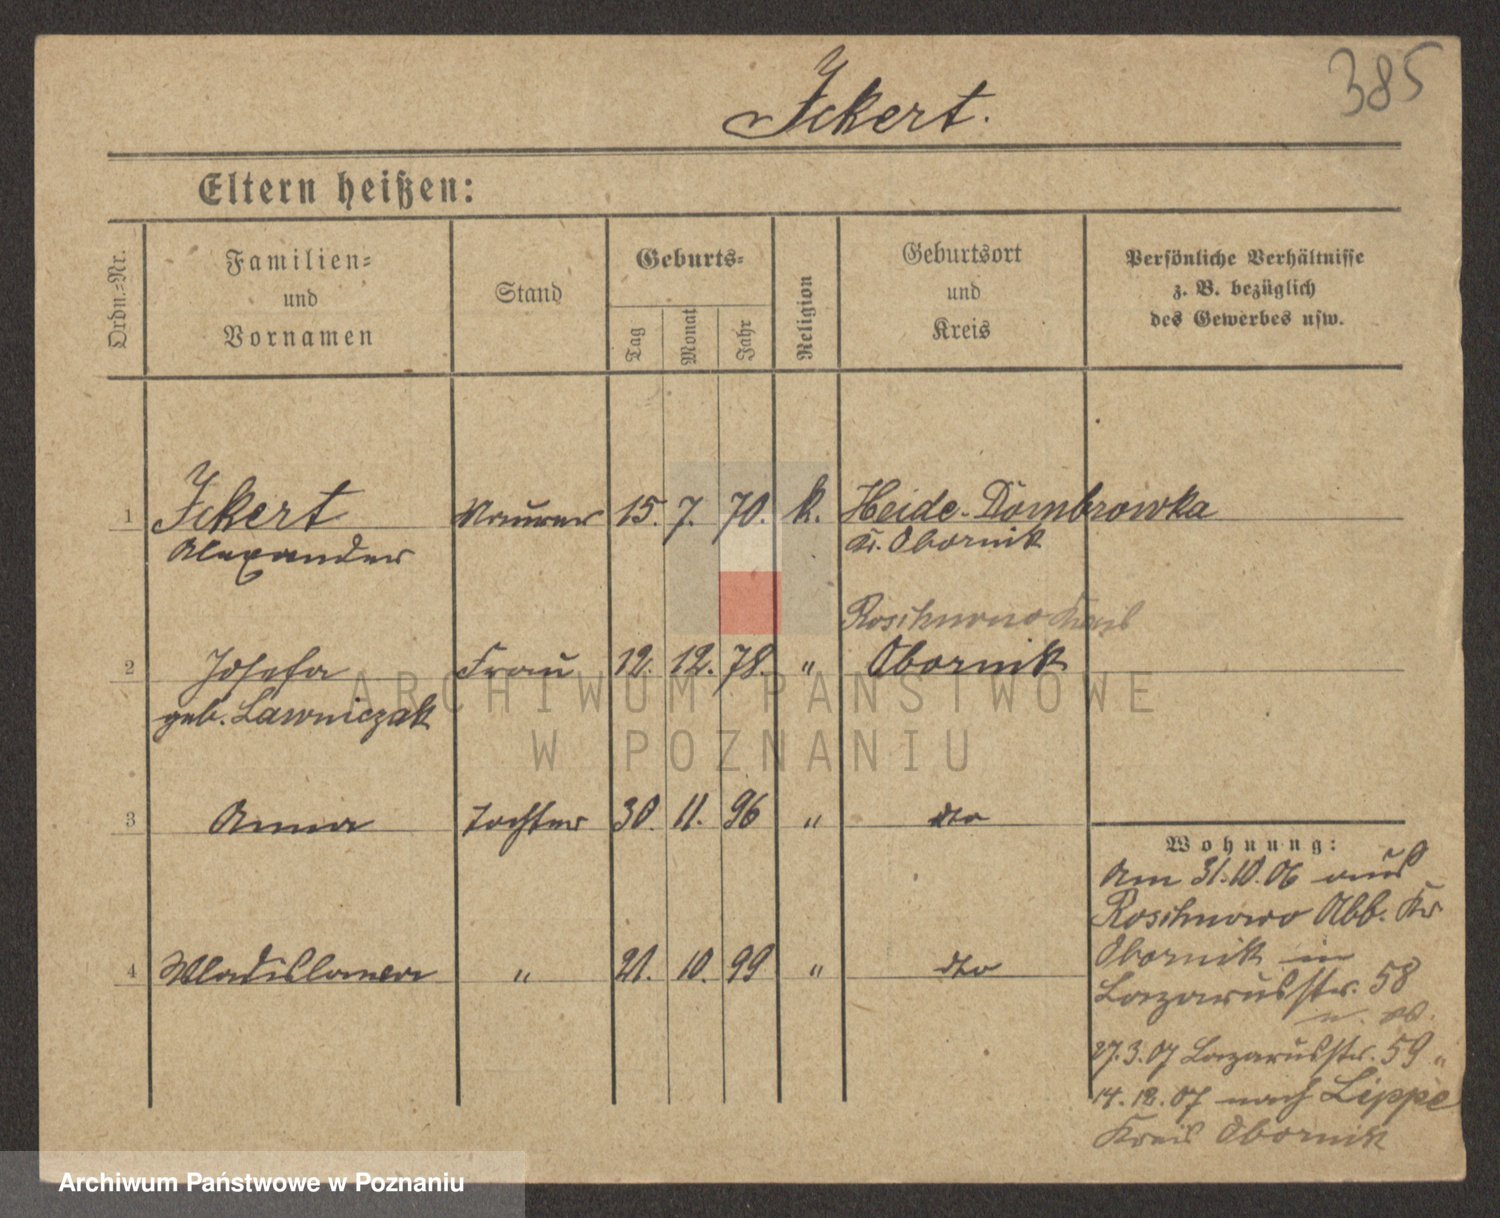 385
Ickert.
Eltern heißen:
Ordn.-Nr.
Familien-
und
Vornamen
Stand
Geburts-
Tag
Monat
Jahr
Religion
Geburtsort
und
Kreis
Persönliche Verhältnisse
z. B. bezüglich
des Gewerbes usw.
1 Ickert Maurer 15. 7. 70. k. Heide-Dombrowka
Alexander Kr. Obornik
Roschnowo Kreis
2 Josefa Frau 12. 12. 78. " Obornik
geb. Lawniczak
3 Anna Tochter 30. 11. 96 " dto
4 Wladislawa " 21. 10. 99 " dto
Wohnung:
Am 31.10.06 aus
Roschnowo Abb. Kr
Obornik in
Lazarusstr. 58
27.3.07 Lazarusstr. 59 "
14.12.07 nach Lippe
Kreis Obornik
ARCHIWUM PAŃSTWOWE
W POZNANIU
Archiwum Państwowe w Poznaniu